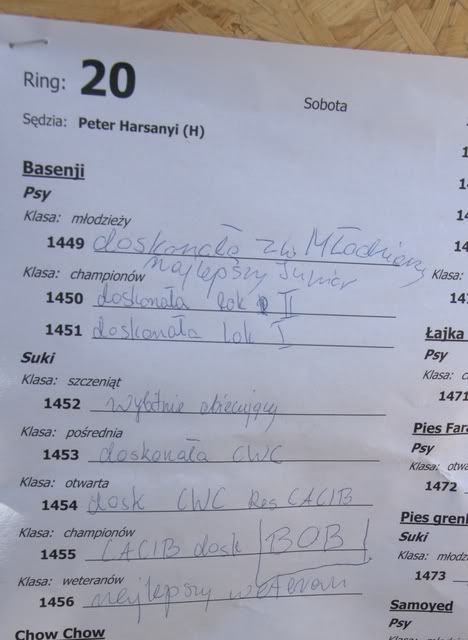 Ring: 20
Sobota
Sędzia: Peter Harsanyi (H)
Basenji
Psy
Klasa: młodzieży
1449 doskonała zw Młodzieży
najlepszy Junior
Klasa: championów
1450 doskonała lok II
1451 doskonała lok I
Suki
Klasa: szczeniąt
1452 wybitnie obiecujący
Klasa: pośrednia
1453 doskonała CWC
Klasa: otwarta
1454 dosk CWC Res CACIB
Klasa: championów
1455 CACIB dosk BOB
Klasa: weteranów
1456 najlepszy weteran
Chow Chow
Klasa:
Łajka
Psy
Klasa:
1471
Pies Fara
Psy
Klasa: otwa
1472
Pies gren
Suki
Klasa: młodz
1473
Samoyed
Psy
Klasa: